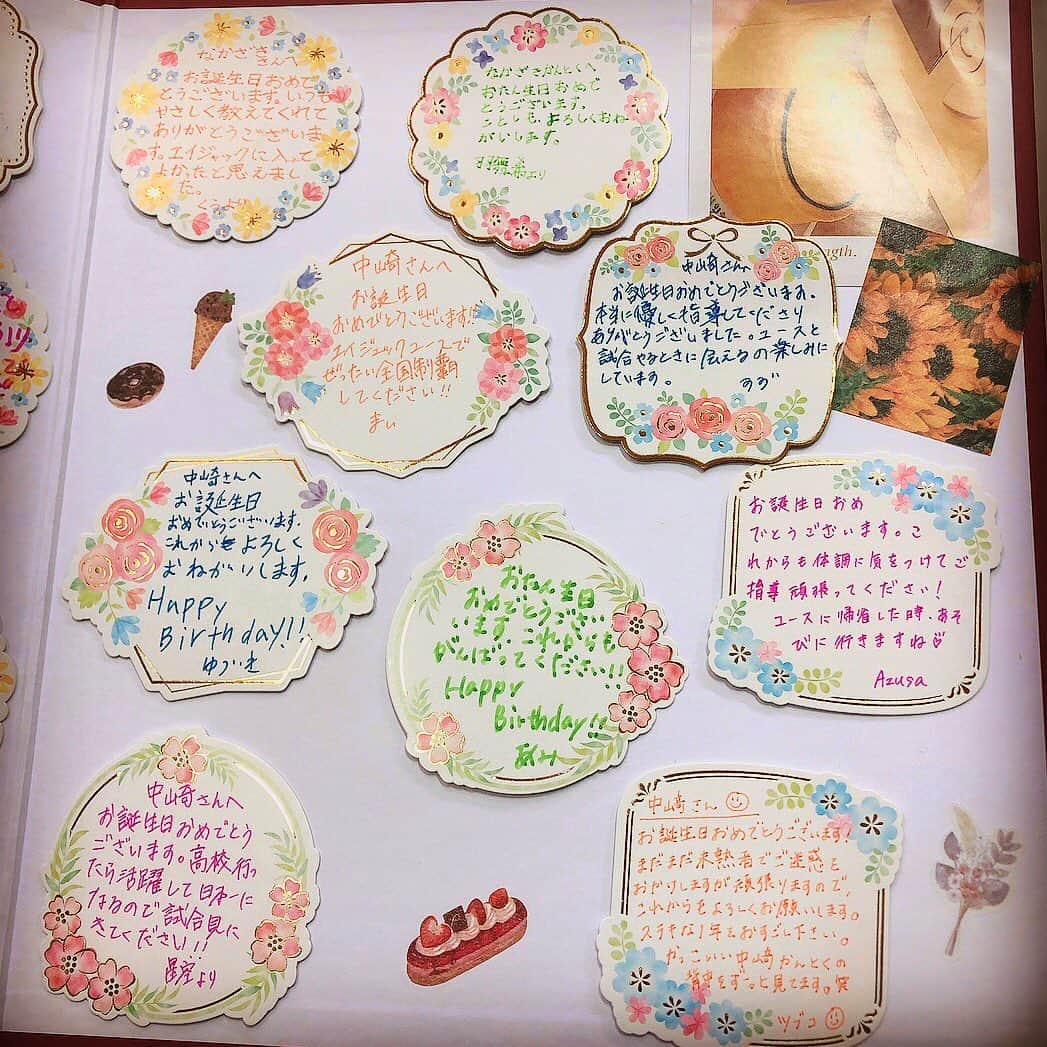 なかざきさんへ
お誕生日おめで
とうございます。いつも
やさしく教えてくれて
ありがとうございま
す。エイジャックに入って
よかったと思えまし
た。
くうより
なかざきかんとくへ
おたん生日おめで
とうございます。
ことしも、よろしくおね
がいします。
より
中山崎さんへ
お誕生日
おめでとうございます!!
エイジェックユースで
ぜったい全国制覇
してください!!
まい
中山崎さんへ
お誕生日おめでとうございます。
本当に優しく指導してくださり
ありがとうございました。ユースと
試合やるときに会えるの楽しみに
しています。 すず
中山崎さんへ
お誕生日
おめでとうございます。
これからもよろしく
おねがいします。
Happy
Birthday!!
ゆづき
おたん生日
おめでとうござい
います。これからも
がんばってください!!
Happy
Birthday!!
あみ
お誕生日おめ
でとうございます。こ
れからも体調に気をつけてご
指導頑張ってください!
ユースに帰省した時、あそ
びに行きますね
Azusa
中山崎さんへ
お誕生日おめでとう
ございます。高校行っ
たら活躍して日本一に
なるので試合見に
きてください!!
より
中山崎さん
お誕生日おめでとうございます!
まだまだ未熟者でご迷惑を
おかけしますが頑張りますので、
これからもよろしくお願いします。
ステキな1年をおすごし下さい。
かっこいい中山崎かんとくの
背中をずーっと見てます。笑
ツブコ
ngth.